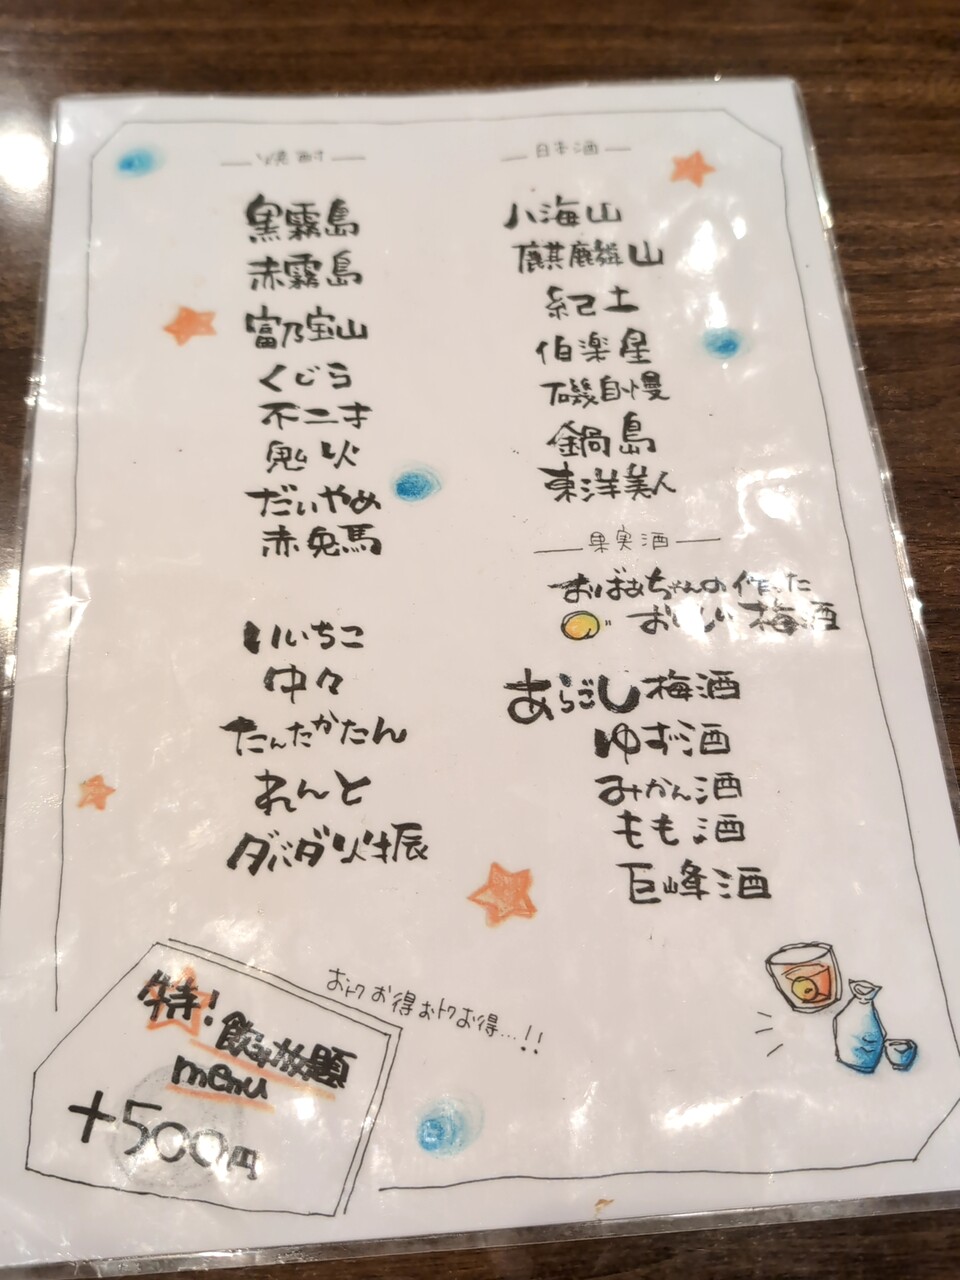 焼酎
黒霧島
赤霧島
富乃宝山
くじら
不二才
鬼火
だいやめ
赤兎馬
いいちこ
中々
たんたかたん
れんと
ダバダ火振
日本酒
八海山
麒麟山
紀土
伯楽星
磯自慢
鍋島
東洋美人
果実酒
おばあちゃんの作った
おいしい梅酒
あらごし梅酒
ゆず酒
みかん酒
もも酒
巨峰酒
おトクお得おトクお得...!!
特!
飲み放題
menu
+500円